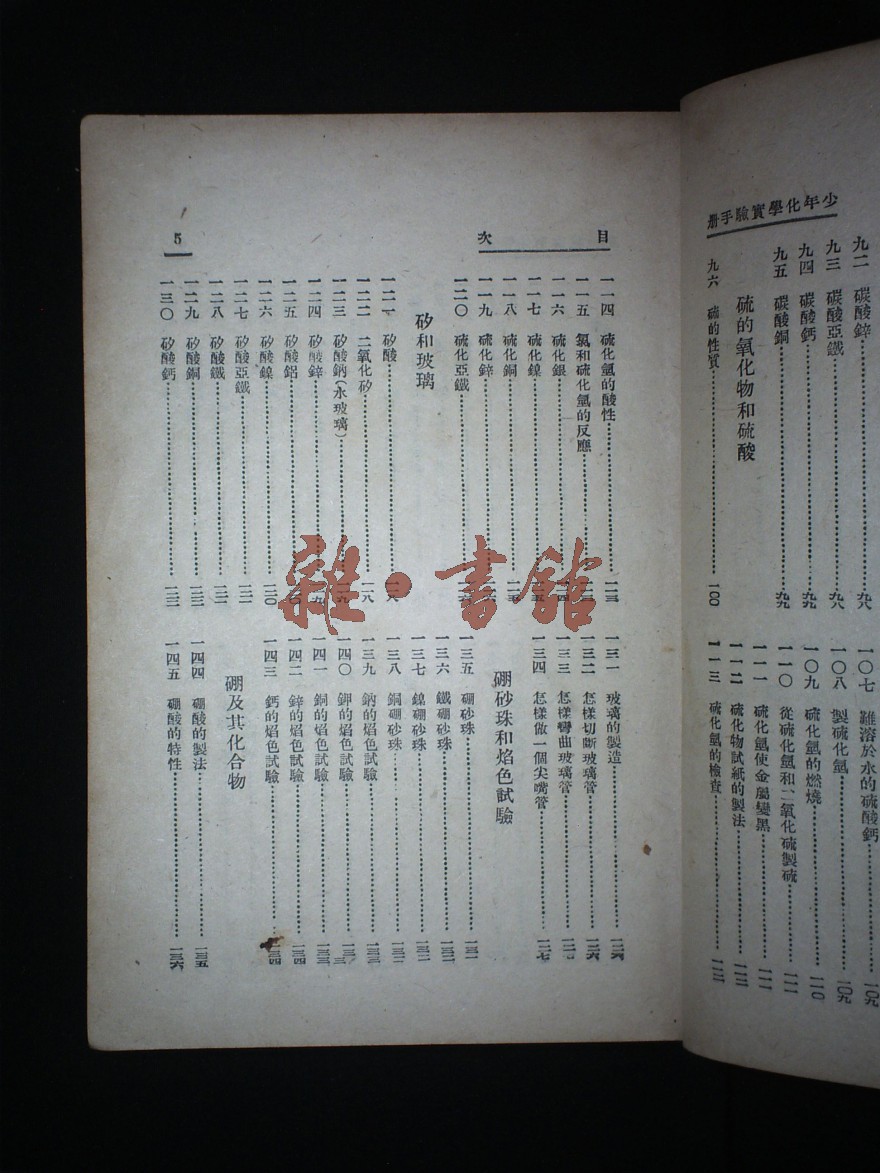 少年化學實驗手册
九二 碳酸鋅 九八
九三 碳酸亞鐵 九八
九四 碳酸鈣 九九
九五 碳酸銅 九九
硫的氧化物和硫酸
九六 硫的性質 一〇〇
一〇七 難溶於水的硫酸鈣 一〇九
一〇八 製硫化氫 一〇九
一〇九 硫化氫的燃燒 一一〇
一一〇 從硫化氫和二氧化硫製硫 一一一
一一一 硫化氫使金屬變黑 一一一
一一二 硫化物試紙的製法 一一二
一一三 硫化氫的檢查 一一二
目次
5
一一四 硫化氫的酸性
一一五 氯和硫化氫的反應
一一六 硫化銀
一一七 硫化鎳
一一八 硫化銅
一一九 硫化鋅
一二〇 硫化亞鐵
矽和玻璃
一二一 矽酸 一一八
一二二 二氧化矽 一一八
一二三 矽酸鈉(水玻璃)
一二四 矽酸鋅
一二五 矽酸鋁
一二六 矽酸鎳 一二〇
一二七 矽酸亞鐵 一二一
一二八 矽酸鐵 一二一
一二九 矽酸銅
一三〇 矽酸鈣
一三一 玻璃的製造 一二六
一三二 怎樣切斷玻璃管 一二六
一三三 怎樣彎曲玻璃管 一二七
一三四 怎樣做一個尖嘴管 一二七
硼砂珠和焰色試驗
一三五 硼砂珠
一三六 鐵硼砂珠 一三二
一三七 鎳硼砂珠 一三二
一三八 銅硼砂珠 一三二
一三九 鈉的焰色試驗 一三三
一四〇 鉀的焰色試驗 一三三
一四一 銅的焰色試驗 一三三
一四二 鋅的焰色試驗 一三四
一四三 鈣的焰色試驗 一三四
硼及其化合物
一四四 硼酸的製法 一三五
一四五 硼酸的特性 一三六
雜·書館